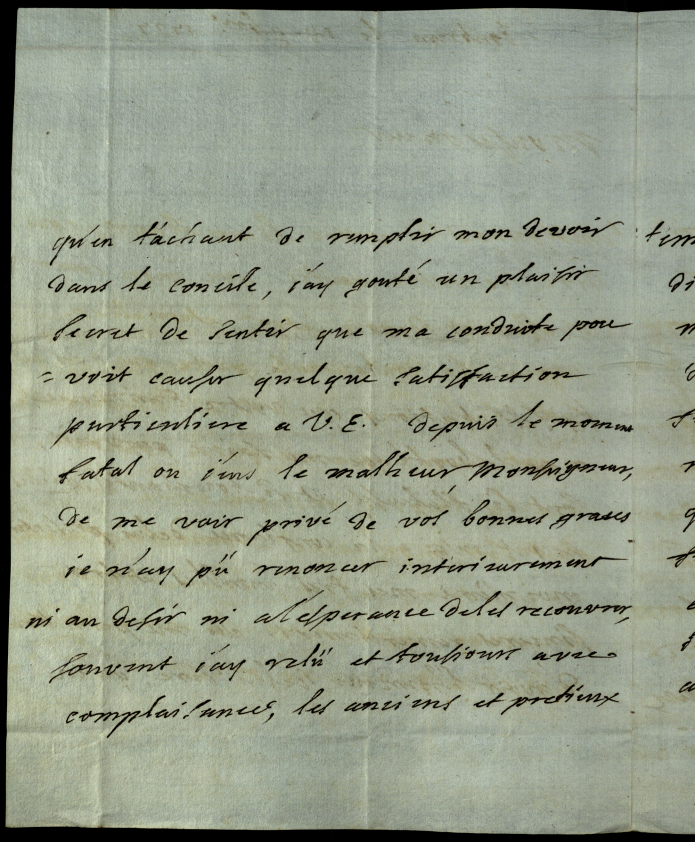 qu'en tâchant de remplir mon devoir
dans le concile, i'ay gouté un plaisir
secret de sentir que ma conduite pou
= voit causer quelque satisfaction
particuliere a V. E. depuis le moment
fatal ou i'eus le malheur, Monseigneur,
de me voir privé de vos bonnes graces
ie n'ay pû renoncer interieurement
ni au desir ni a l'esperance de les recouvrer,
souvent i'ay relû et tousiours avec
complaisance, les anciens et pretieux